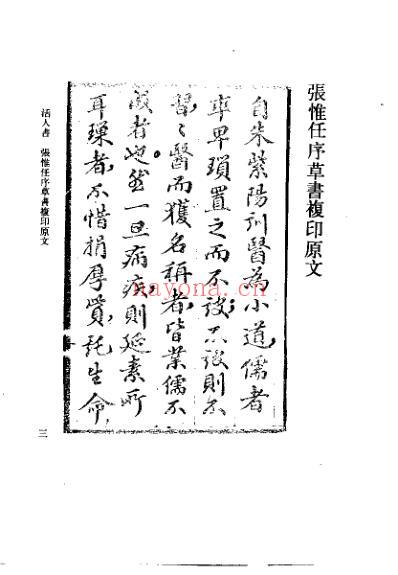 張惟任序草書複印原文
自朱紫陽列醫為小道儒者
率卑瑣置之而不談不談則不
習〻醫而獲名稱者皆業儒不
成者也然一旦病疾則延素所
耳者不惜捐厚貲託生命
活人書 張惟任序草書複印原文
三
nayona.cn